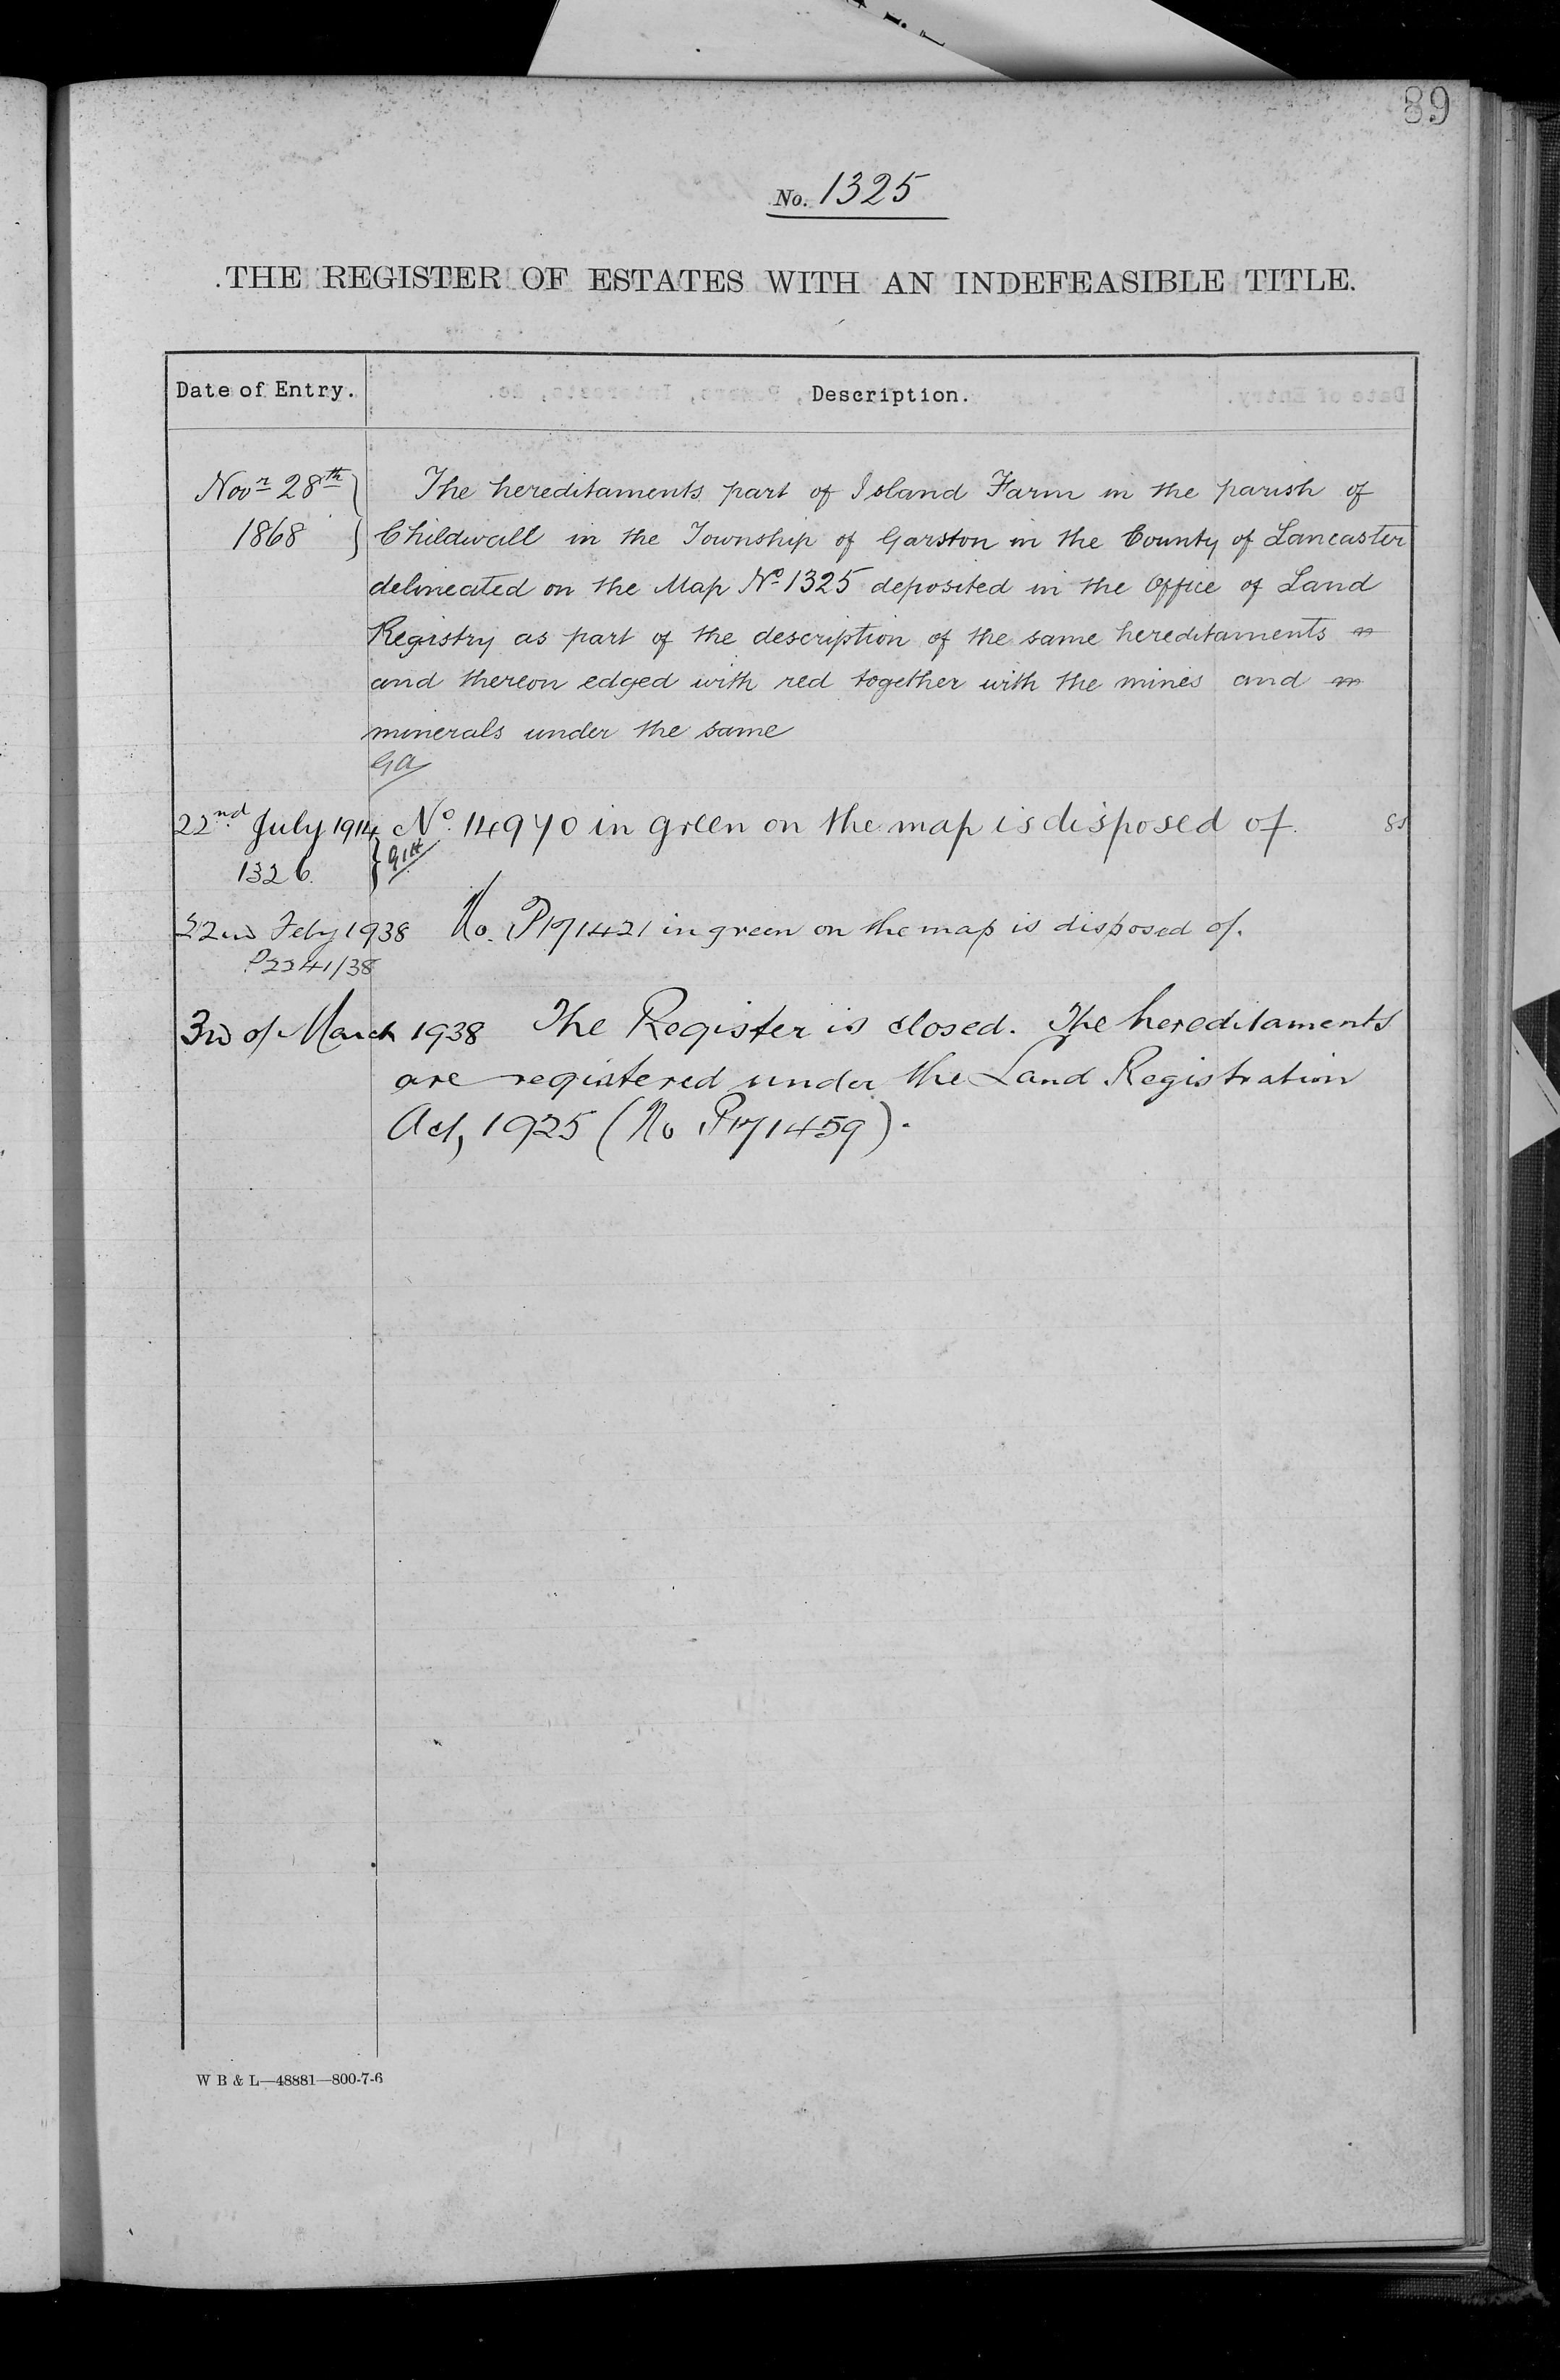 89
No. 1325
THE REGISTER OF ESTATES WITH AN INDEFEASIBLE TITLE.
Date of Entry. Description.
Novr 28th The hereditaments part of Island Farm in the parish of
1868 Childwall in the Township of Garston in the County of Lancaster
delineated on the Map No 1325 deposited in the Office of Land
Registry as part of the description of the same hereditaments
and thereon edged with red together with the mines and
minerals under the same
GA
22nd July 1914 No. 14970 in green on the map is disposed of.
1326
22nd Feby 1938 No. P171421 in green on the map is disposed of.
P2241/38
3rd of March 1938 The Register is closed. The hereditaments
are registered under the Land Registration
Act, 1925 (No P171459).
W B & L—48881—800-7-6